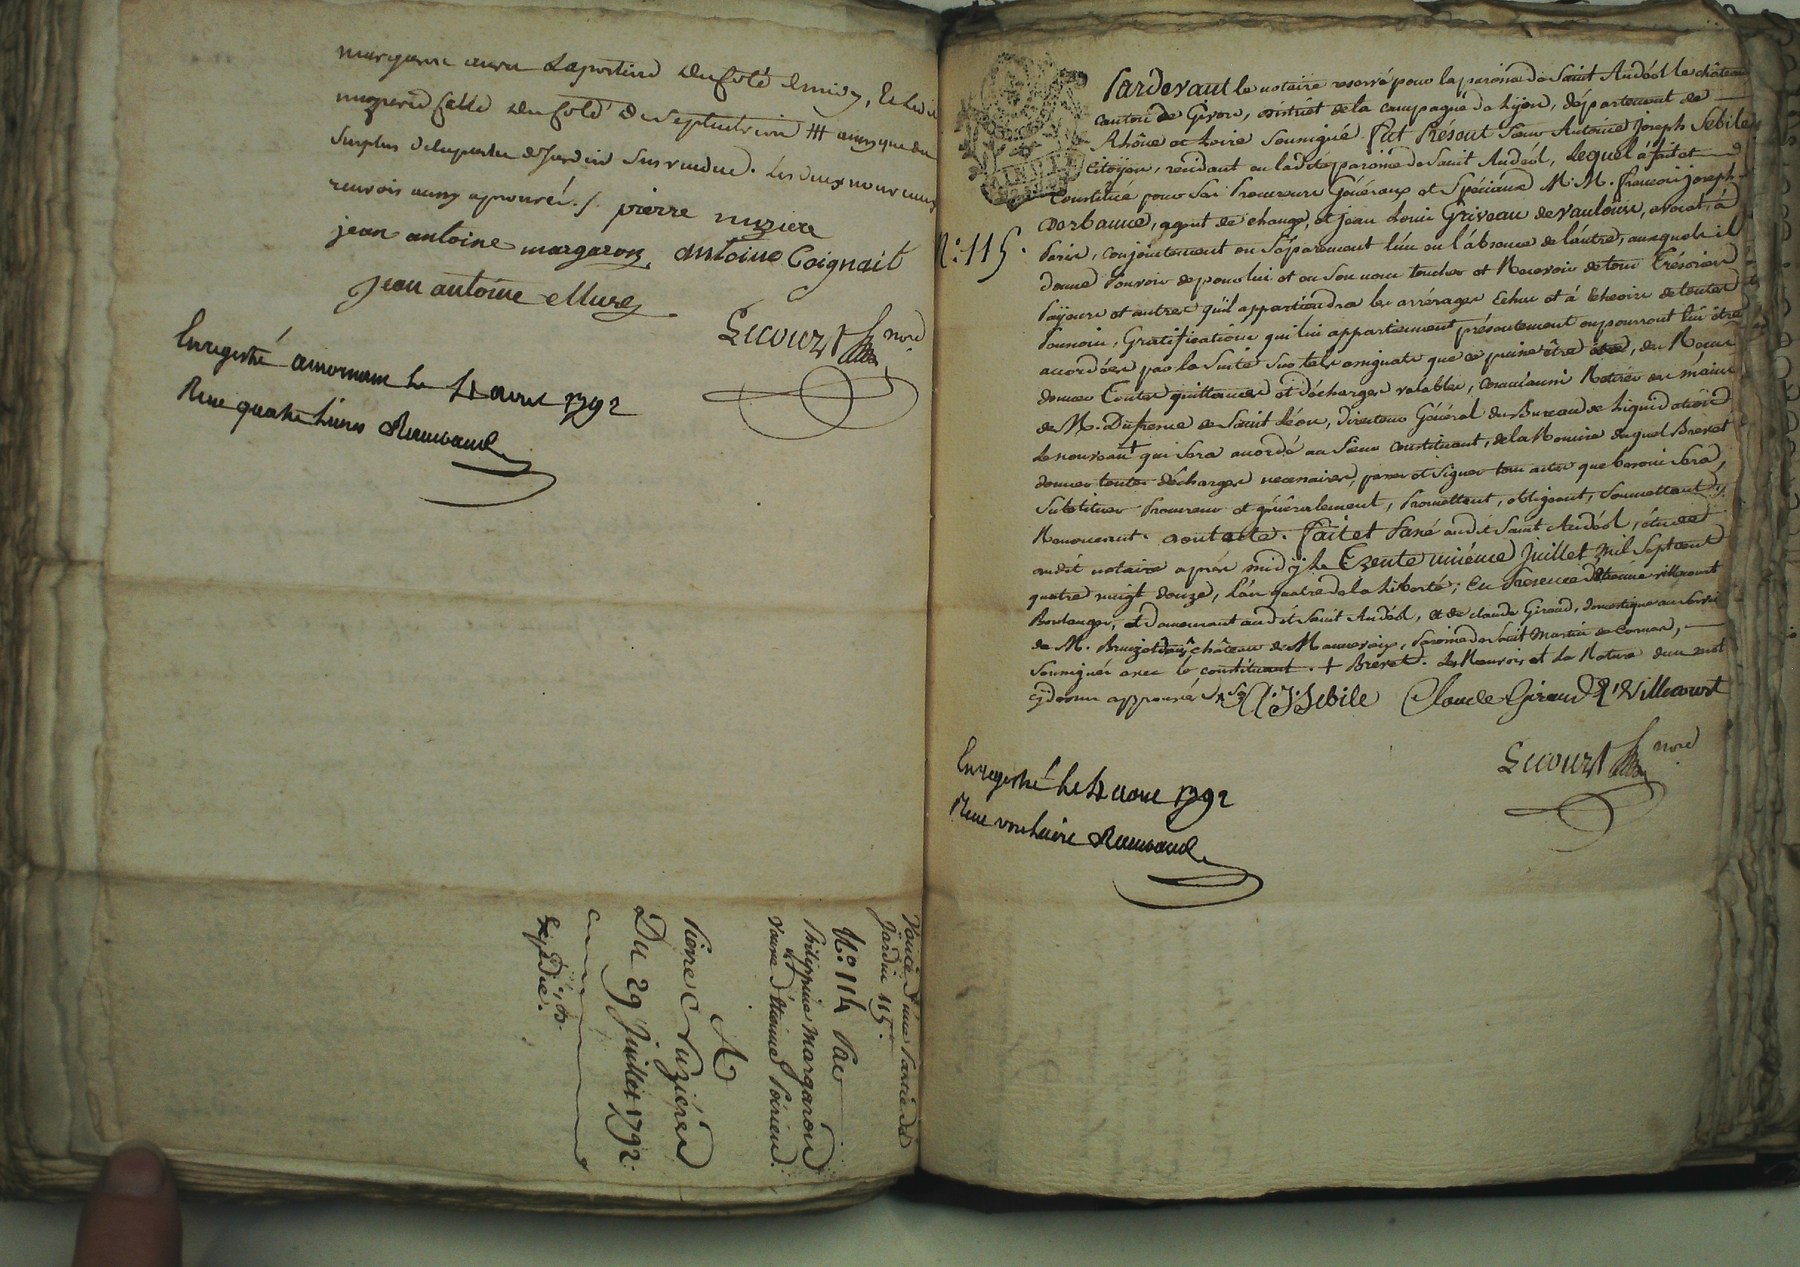 margaron aura la portion du coté de midy, et led.
nuzierre celle du coté de septentrion ++ ainsy que du
surplus de la partie de Jardin sus vendue. les deux nouveaux
renvois aussy approuvés ./. pierre nuziere
jean antoine margaron antoine Coignait
jean antoine Mure
Lecourt nore
Enregistré a mornant le 4 aout 1792
Reçu quatre livres Raimbaud
Vente d'une Partie de
Jardin 115.
N.o 114 Par
Philippine Margaron
Veuve d'étienne Poirieu.
A
Pierre Nuzière
Du 29 Juillet 1792.
Expédié.
N.o 115.
Pardevant le notaire reservé pour la paroisse de Saint Andéol le château
canton de Givors, district de la campagne de Lyon, département de
Rhône et Loire soussigné fut Présent Sieur Antoine Joseph Sebile
Citoyen, residant en ladite paroisse de Saint Andéol, Lequel à fait et
Constitué pour ses Procureurs Généraux et Spéciaux M. M. françois joseph
Darbanne, agent de change, et jean Louis Griveau de Vaulouse, avocat, à
Paris, conjointement ou séparement l'un en l'absence de l'autre, auxquels il
donne Pouvoir de pour lui et en son nom toucher et Recevoir de tous Trésoriers
Payeurs et autres qu'il appartiendra les arrérages Echus et à Echeoir de toutes
Pensions, Gratifications qui lui appartiennent présentement ou pourront lui être
accordées par la suite sur tels assignats que ce puisse être, du Reçu
donner Toutes quittances et décharges valables, comme aussi Retirer des mains
de M. Dufresne de Saint Léon, Directeur Général du Bureau de Liquidation
le nouveau + qui sera accordé au Sieur constituant, de la Remise duquel Brevet
donner toutes décharges necessaires, passer et signer tous actes que besoin sera,
Substituer Procureur et généralement, Promettant, obligeant, Soumettant,
Renonceant. Dont acte. Fait et Passé audit Saint Andéol, étude
dudit notaire après midy le Trente unième juillet mil Sept cent
quatre vingt douze, l'an quatre de la Liberté; En Presence d'étienne villecourt
Boulanger, et demeurant audit Saint Andéol, et de claude Giraud, domestique au service
de M. château de Mauvevaix, Paroisse de Saint Martin de Cornas,
Soussignés avec le constituant. + Brevet. Le Renvoi et La Rature d'un mot
cy dessus approuvés A. J. Sebile Claude Giraud E. Villecourt
Lecourt nore
Enregistré le 4 aout 1792
Reçu vin Livre Raimbaud